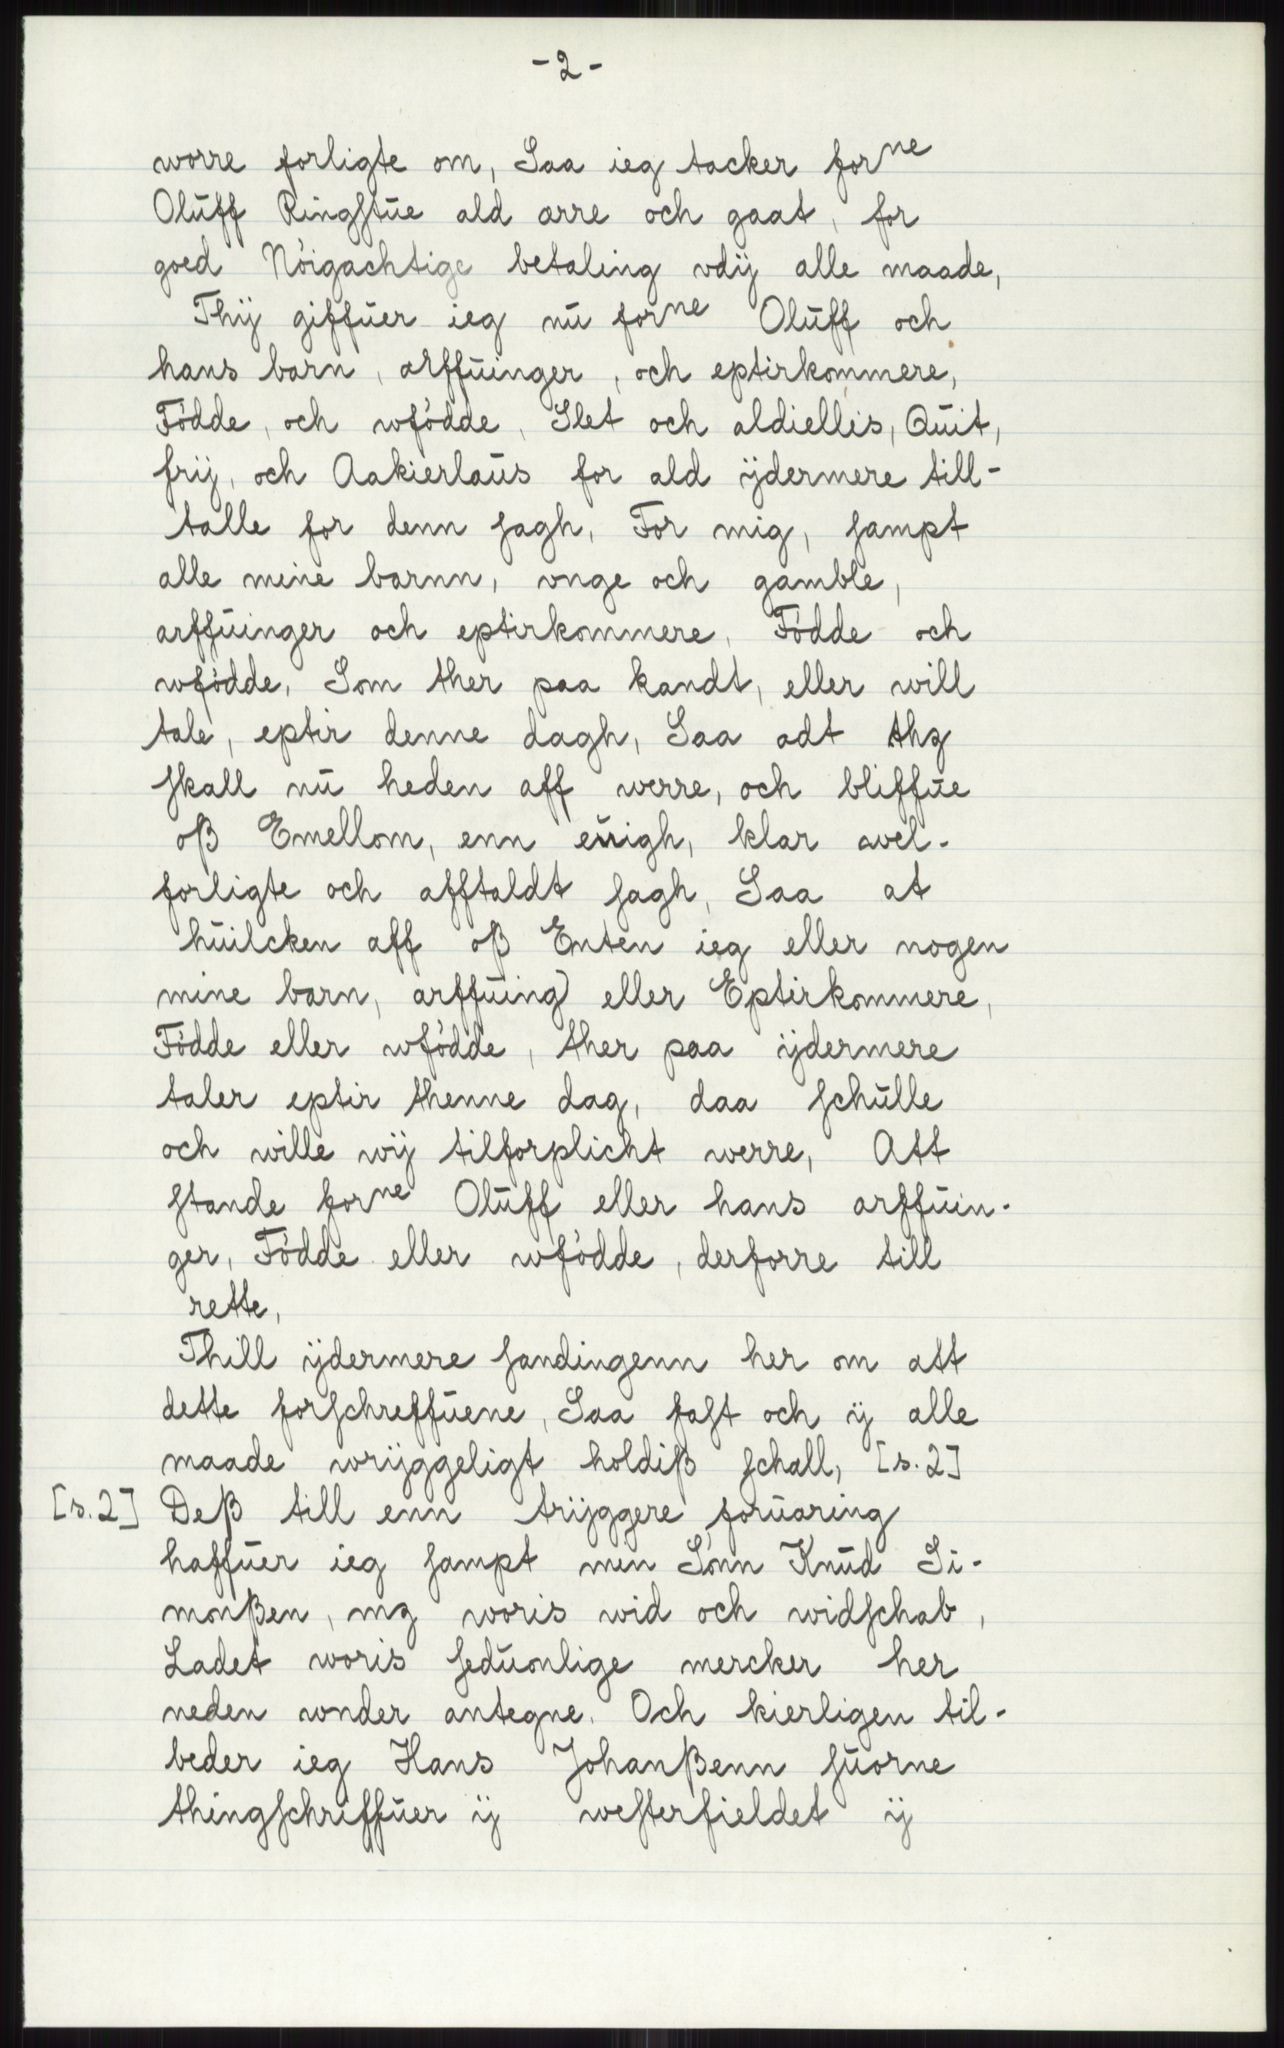 -2-
worre forligte om, Saa ieg tacker forne
Olūff Ringſtūe ald ærre och gaat, for
goed Nóigachtige betaling vdÿ alle maade,
Thÿ giffūer ieg nū forne Olūff och
hans barn, arffūinger, och eptirkommere,
Fódde, och wfódde, Slet och aldiellis, Qūit,
frÿ, och Aakierlaūs for ald ÿdermere till-
talle for denn ſagh, For mig, ſampt
alle mine barnn, vnge och gamble,
arffūinger och eptirkommere, Fódde och
wfódde, Som ther paa kandt, eller will
tale, eptir denne dagh, Saa adt thz
ſkall nū heden aff werre, och bliffūe
oß Emellom, enn eūigh, klar avel-
forligte och afftaldt ſagh, Saa at
hūilcken aff oß Enten ieg eller nogen
mine barn, arffūing) eller Eptirkommere,
Fódde eller wfódde, ther paa ÿdermere
taler eptir thenne dag, daa ſchūlle
och wille wÿ tilforplicht werre, Att
ſtande forne Olūff eller hans arffūin-
ger, Fódde eller wfódde, derforre till
rette,
Thill ÿdermere ſandingenn her om att
dette forſchreffūene, Saa faſt och ÿ alle
maade wrÿggeligt holdiß ſchall, [s.2]
[s.2] Deß till enn trÿggere forūaring
haffūer ieg ſampt men Sónn Knūd Si-
monßen, mz woris wid och widſchab,
Ladet woris ſedūonlige mercker her
neden wnder antegne. Och kierligen til-
beder ieg Hans Johanßenn ſūorne
thingſchriffūer ÿ weſterfieldet ÿ